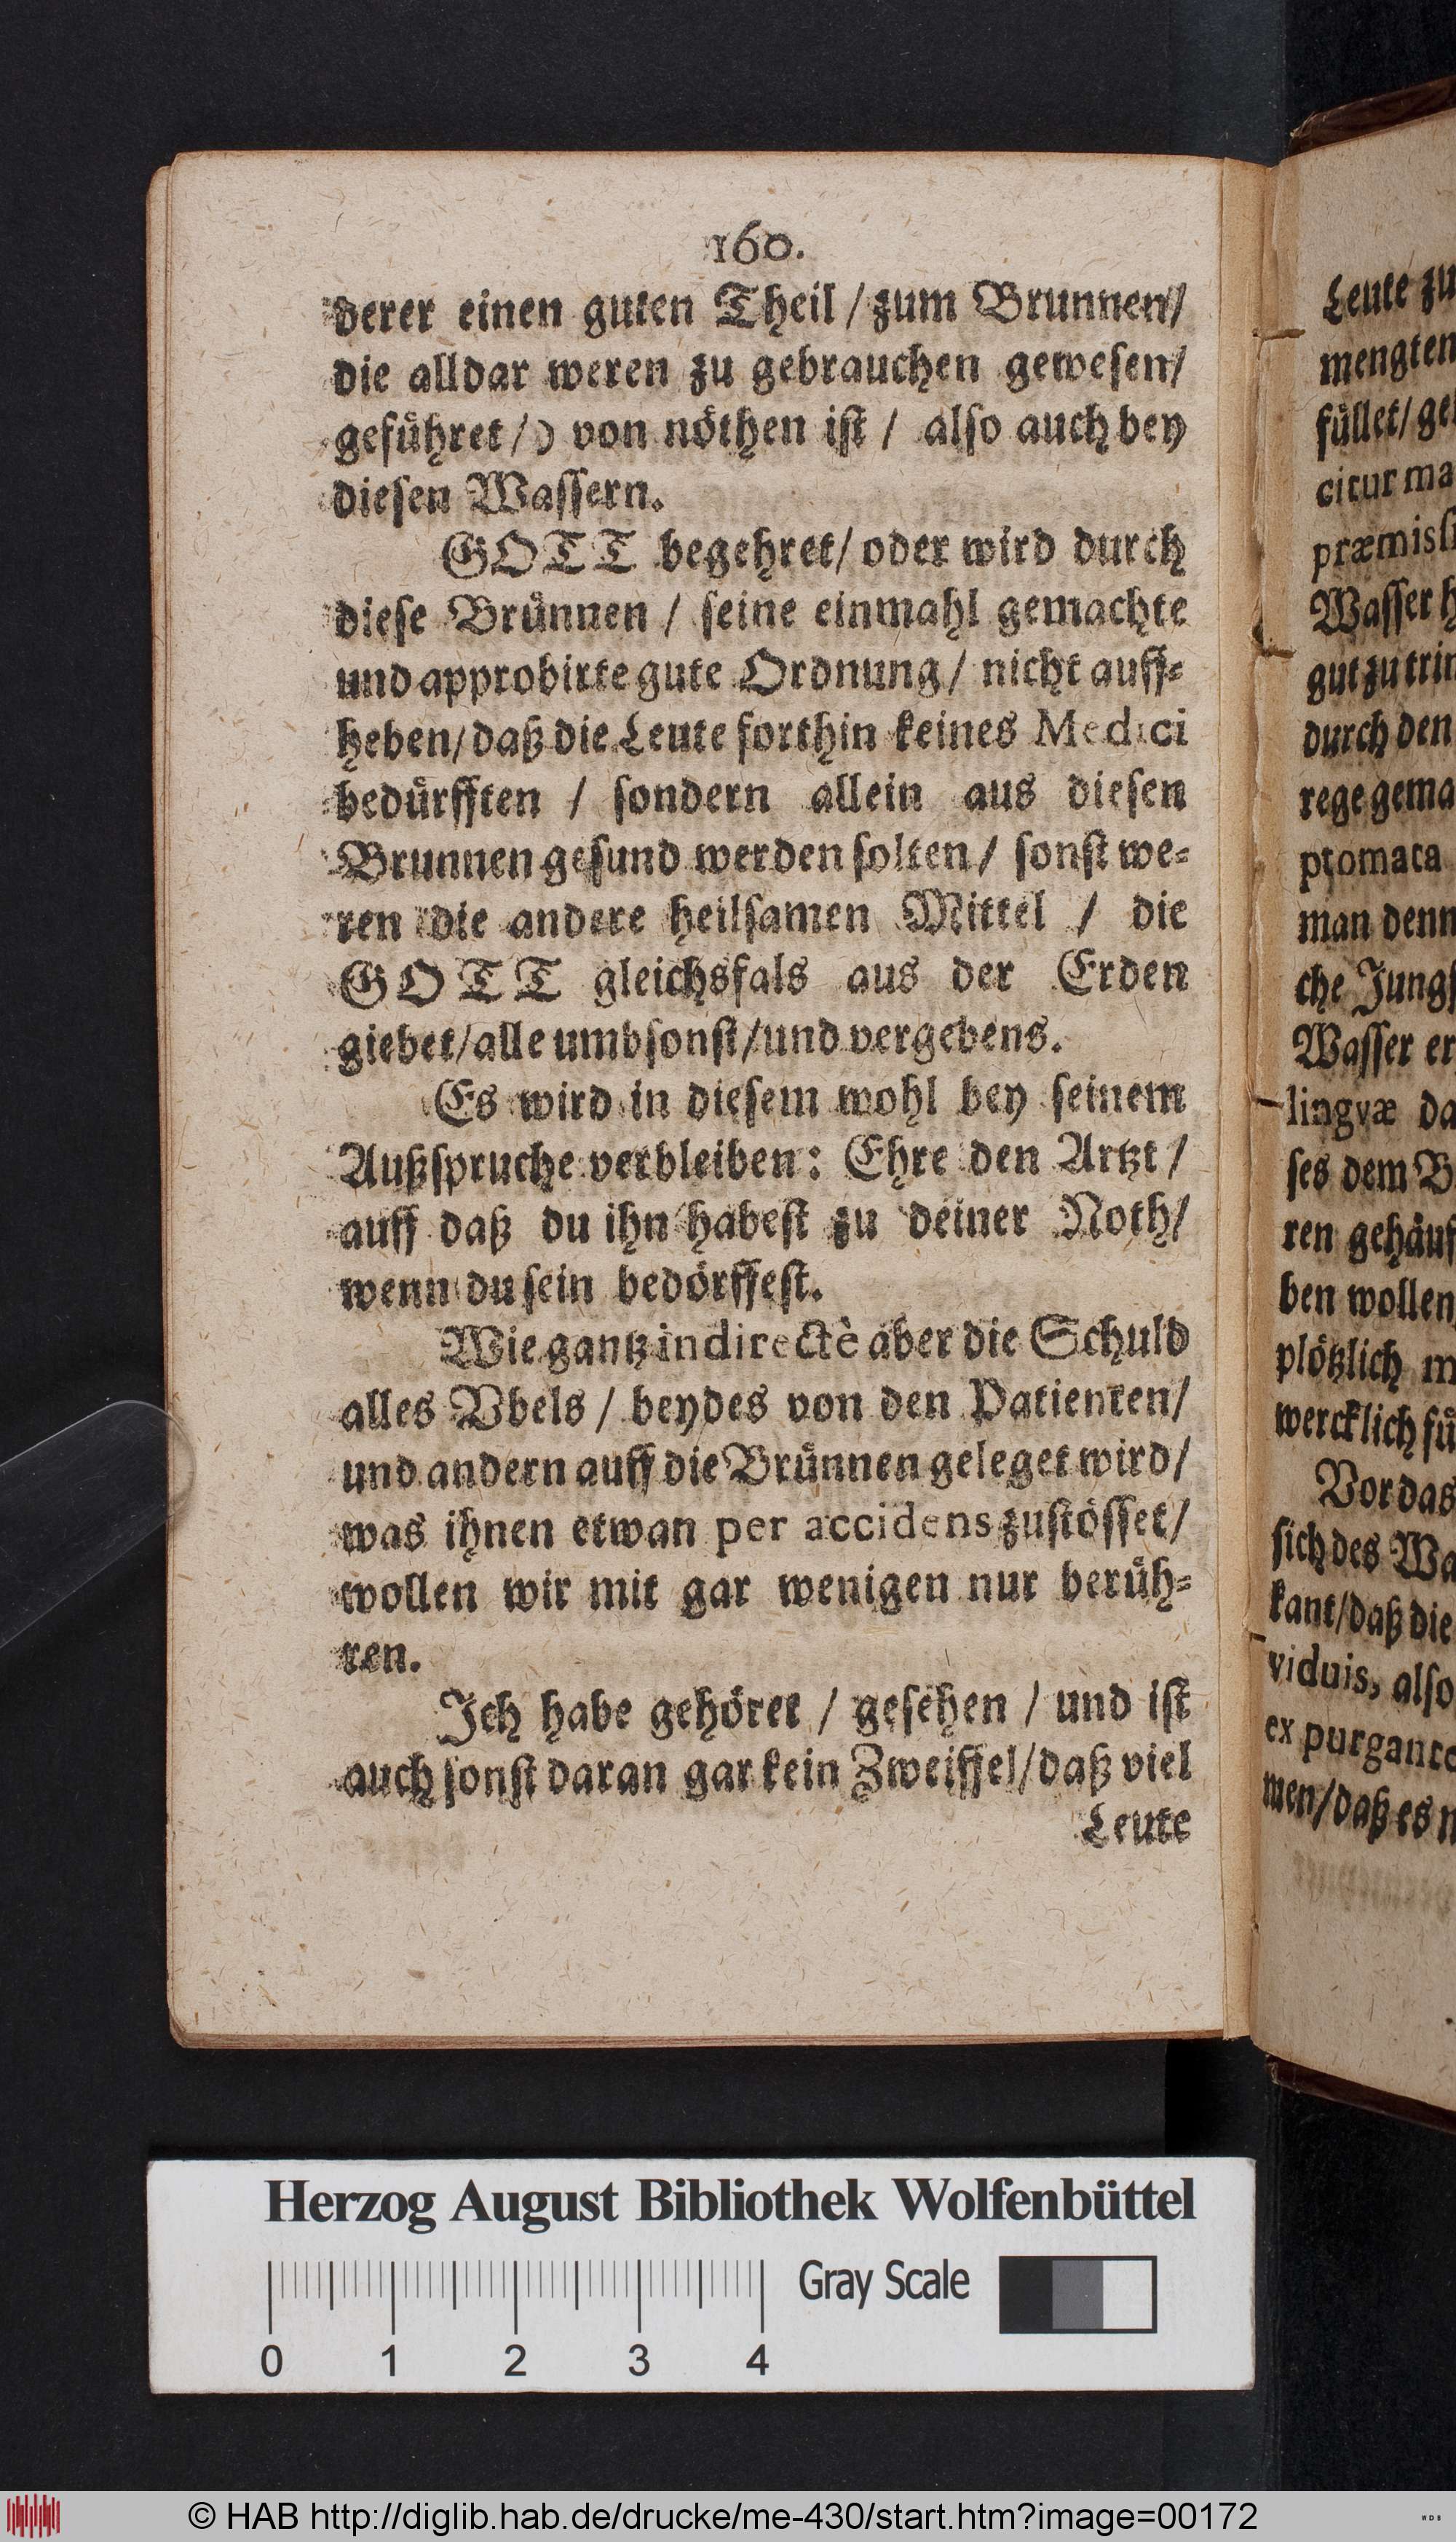 160.
derer einen guten Theil / zum Brunnen /
die alldar weren zu gebrauchen gewesen /
geführet / ) von nöthen ist / also auch bey
diesen Wassern.
GOTT begehret / oder wird durch
diese Brünnen / seine einmahl gemachte
und approbirte gute Ordnung / nicht auff-
heben / daß die Leute forthin keines Medici
bedürfften / sondern allein aus diesen
Brunnen gesund werden solten / sonst we-
ren die andere heilsamen Mittel / die
GOTT gleichsfals aus der Erden
giebet / alle umbsonst / und vergebens.
Es wird in diesem wohl bey seinem
Außspruche verbleiben: Ehre den Artzt /
auff daß du ihn habest zu deiner Noth /
wenn du sein bedörffest.
Wie gantz indirectè aber die Schuld
alles Vbels / beydes von den Patienten /
und andern auff die Brünnen geleget wird /
was ihnen etwan per accidens zustösset /
wollen wir mit gar wenigen nur berüh-
ren.
Ich habe gehöret / gesehen / und ist
auch sonst daran gar kein Zweiffel / daß viel
Leute
Leute zu
mengten
füllet / ge
citur ma
præmissi
Wasser h
gut zu trin
durch den
rege gema
ptomata
man denn
che Jungf
Wasser er
lingvæ da
ses dem B
ren gehäuf
ben wollen
plötzlich m
wercklich fü
Vor das
sich des Wa
kant / daß die
viduis, also
ex purgante
men / daß es n
Herzog August Bibliothek Wolfenbüttel
Gray Scale
0 1 2 3 4
© HAB http://diglib.hab.de/drucke/me-430/start.htm?image=00172
WDB